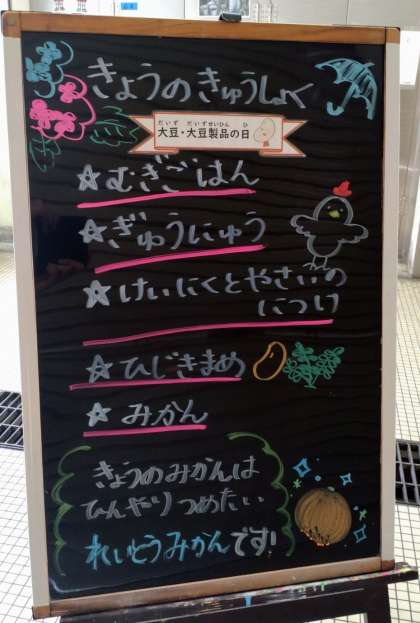 きょうのきゅうしょく
だいず だいずせいひん ひ
大豆・大豆製品の日
☆むぎごはん
☆ぎゅうにゅう
☆けいにくとやさいの
につけ
☆ひじきまめ
☆みかん
きょうのみかんは
ひんやりつめたい
れいとうみかんです!